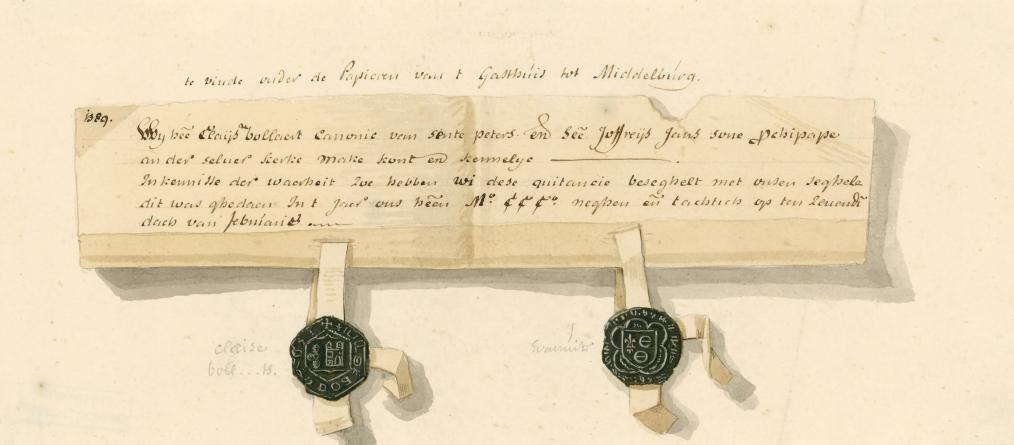 te vinde onder de Papieren van t Gasthuis tot Middelburg.
1389.
Wy hēē Claijs bollaert canonic van sente peters en hēē Joffreijs Jans sone pchipape
an der seluer kerke make kont en kennelyc
In kennisse der waerheit zoe hebben wi dese quitancie beseghelt met onsen seghele
dit was ghedaen In t Jaer ons hēēn Mº. CCCº. neghen eñ tachtich op ten zeuend
dach van februario
claise
boll...s.